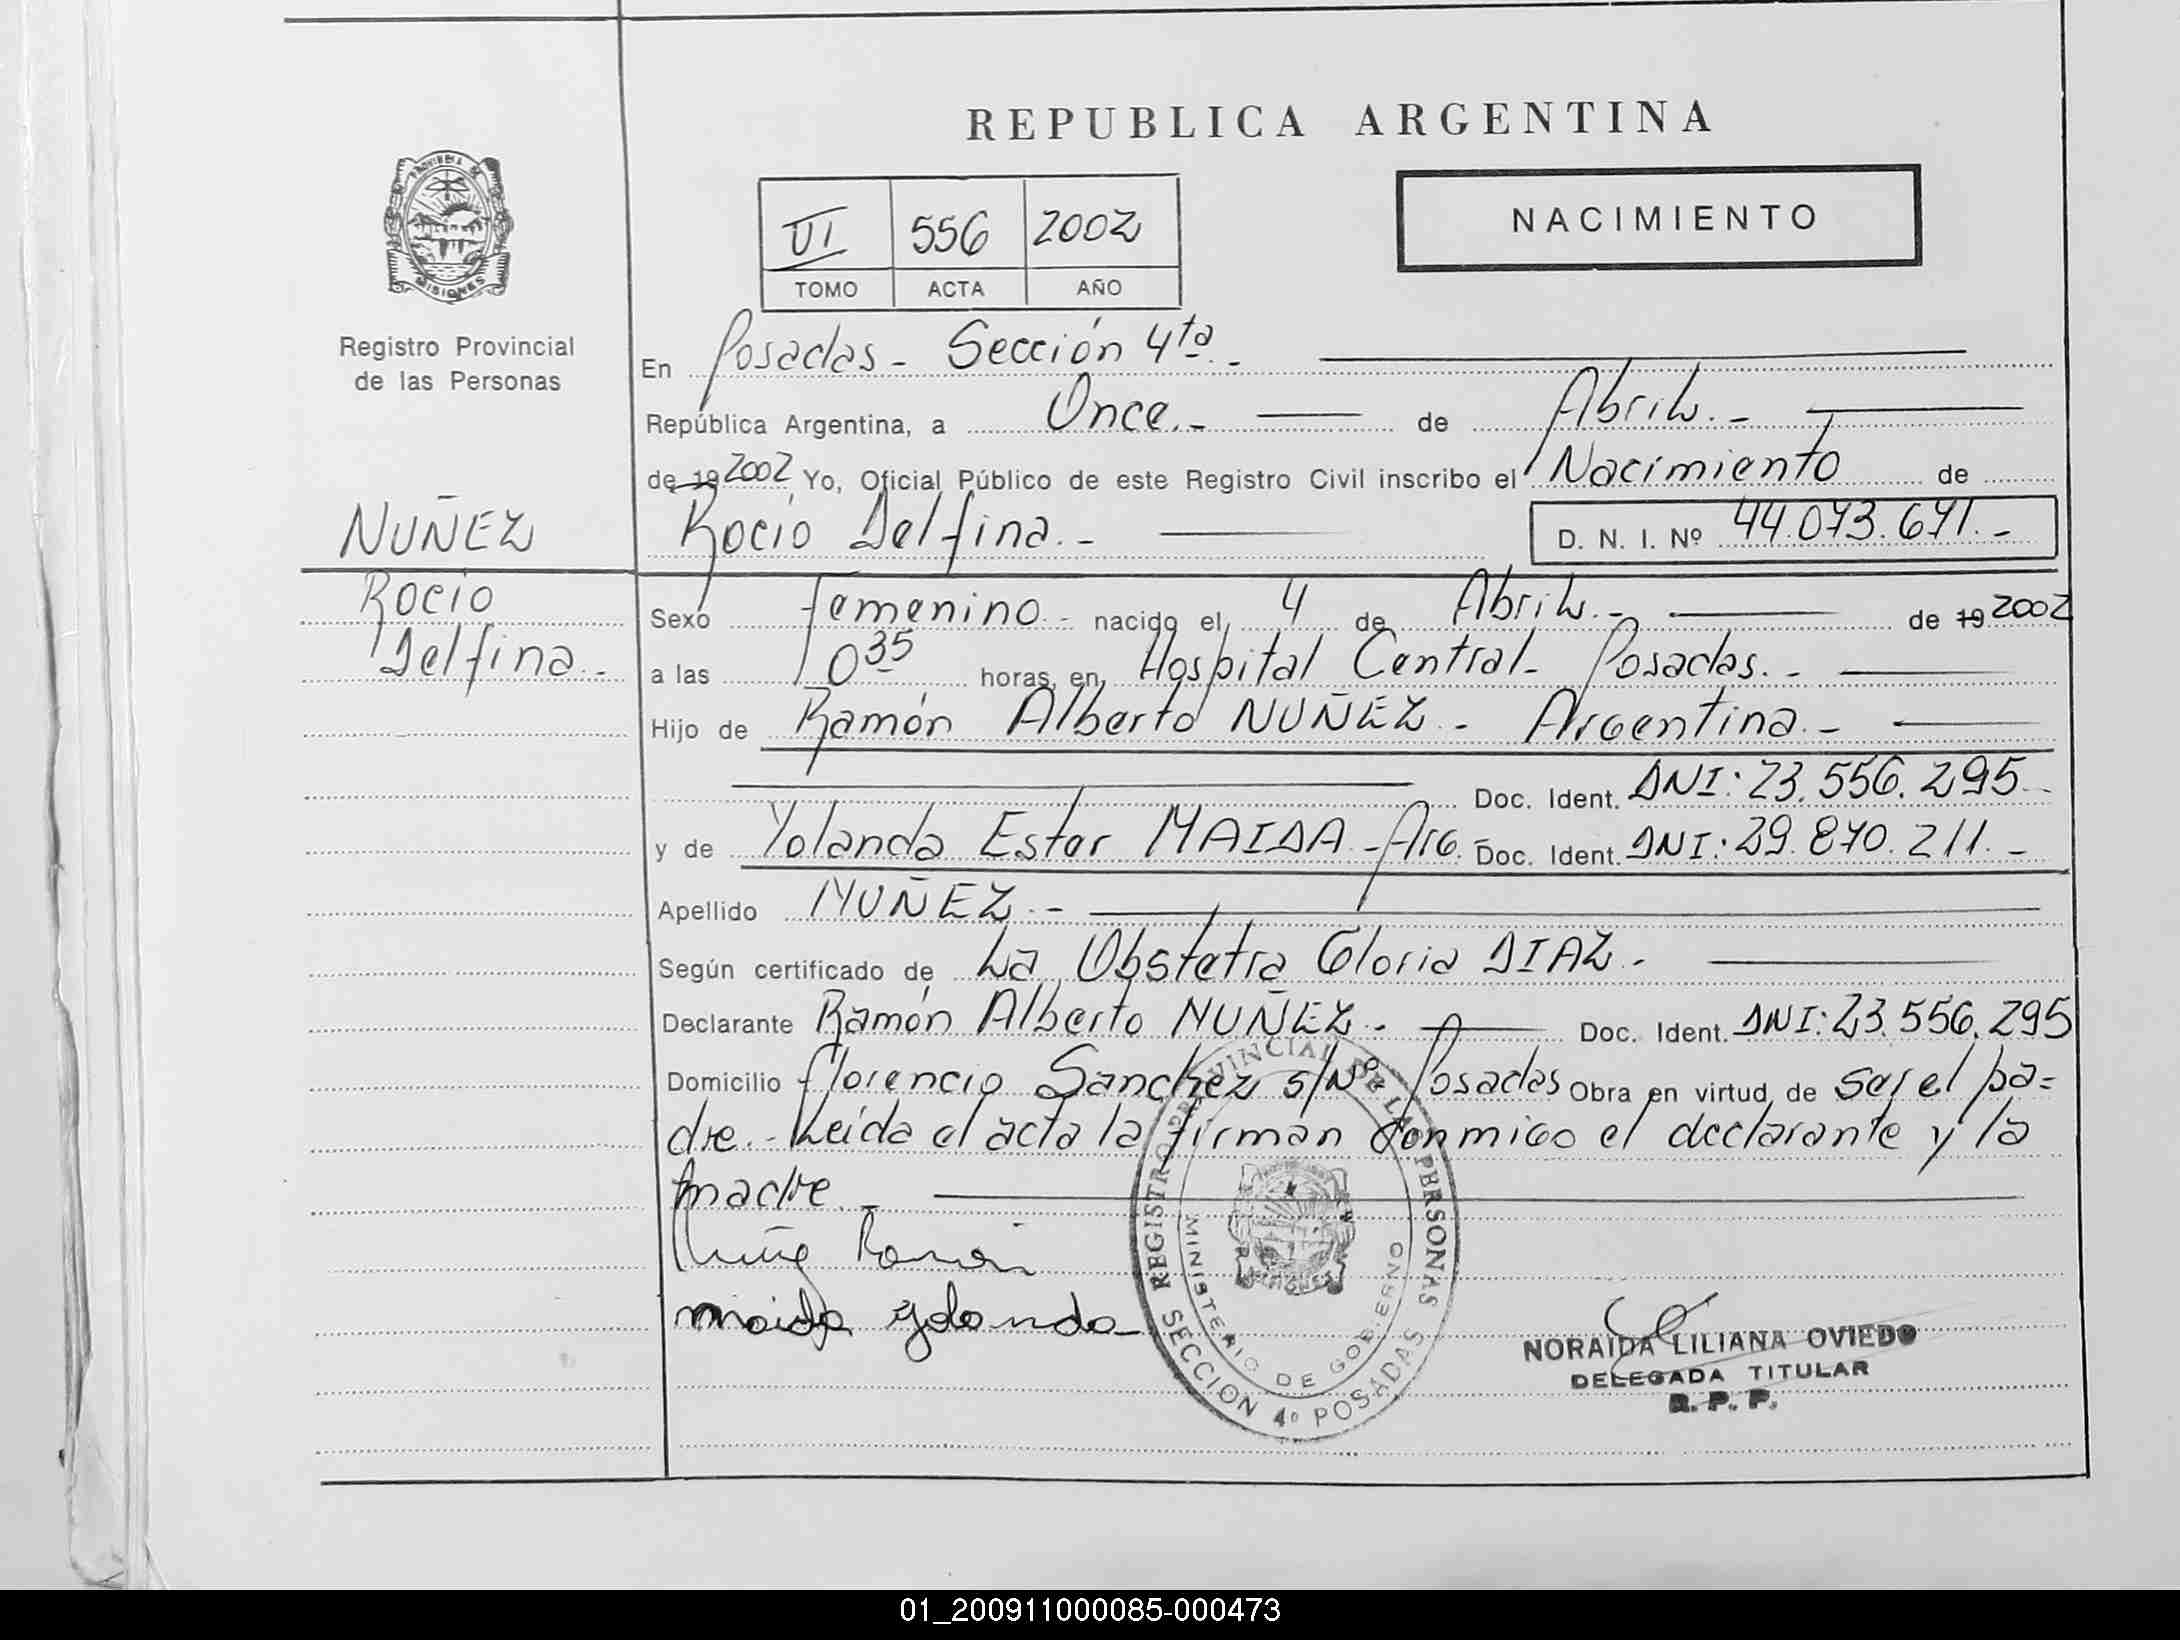 REPUBLICA ARGENTINA
VI 556 2002
TOMO ACTA AÑO
NACIMIENTO
PROVINCIA MISIONES
Registro Provincial
de las Personas
NUÑEZ
Rocio
Delfina.-
En Posadas - Sección 4ta.-
República Argentina, a Once.- de Abril.-
de 19 2002 Yo, Oficial Público de este Registro Civil inscribo el Nacimiento de
Rocio Delfina.- D. N. I. Nº 44.073.671.-
Sexo femenino.- nacido el 4 de Abril.- de 19 2002
a las 0 35 horas, en Hospital Central- Posadas.-
Hijo de Ramón Alberto NUÑEZ.- Argentina.-
Doc. Ident. DNI: 23.556.295.-
y de Yolanda Ester MAIDA - Arg. Doc. Ident. DNI: 29.870.211.-
Apellido NUÑEZ.-
Según certificado de La Obstetra Gloria DIAZ.-
Declarante Ramón Alberto NUÑEZ.- Doc. Ident. DNI: 23.556.295
Domicilio Florencio Sanchez s/Nº- Posadas Obra en virtud de ser el pa=
dre.- Leida el acta la firman conmigo el declarante y la
madre.-
maida yolanda
REGISTRO PROVINCIAL DE LAS PERSONAS
MINISTERIO DE GOBIERNO
SECCION 4º POSADAS
NORAIDA LILIANA OVIEDO
DELEGADA TITULAR
R. P. P.
01_200911000085-000473